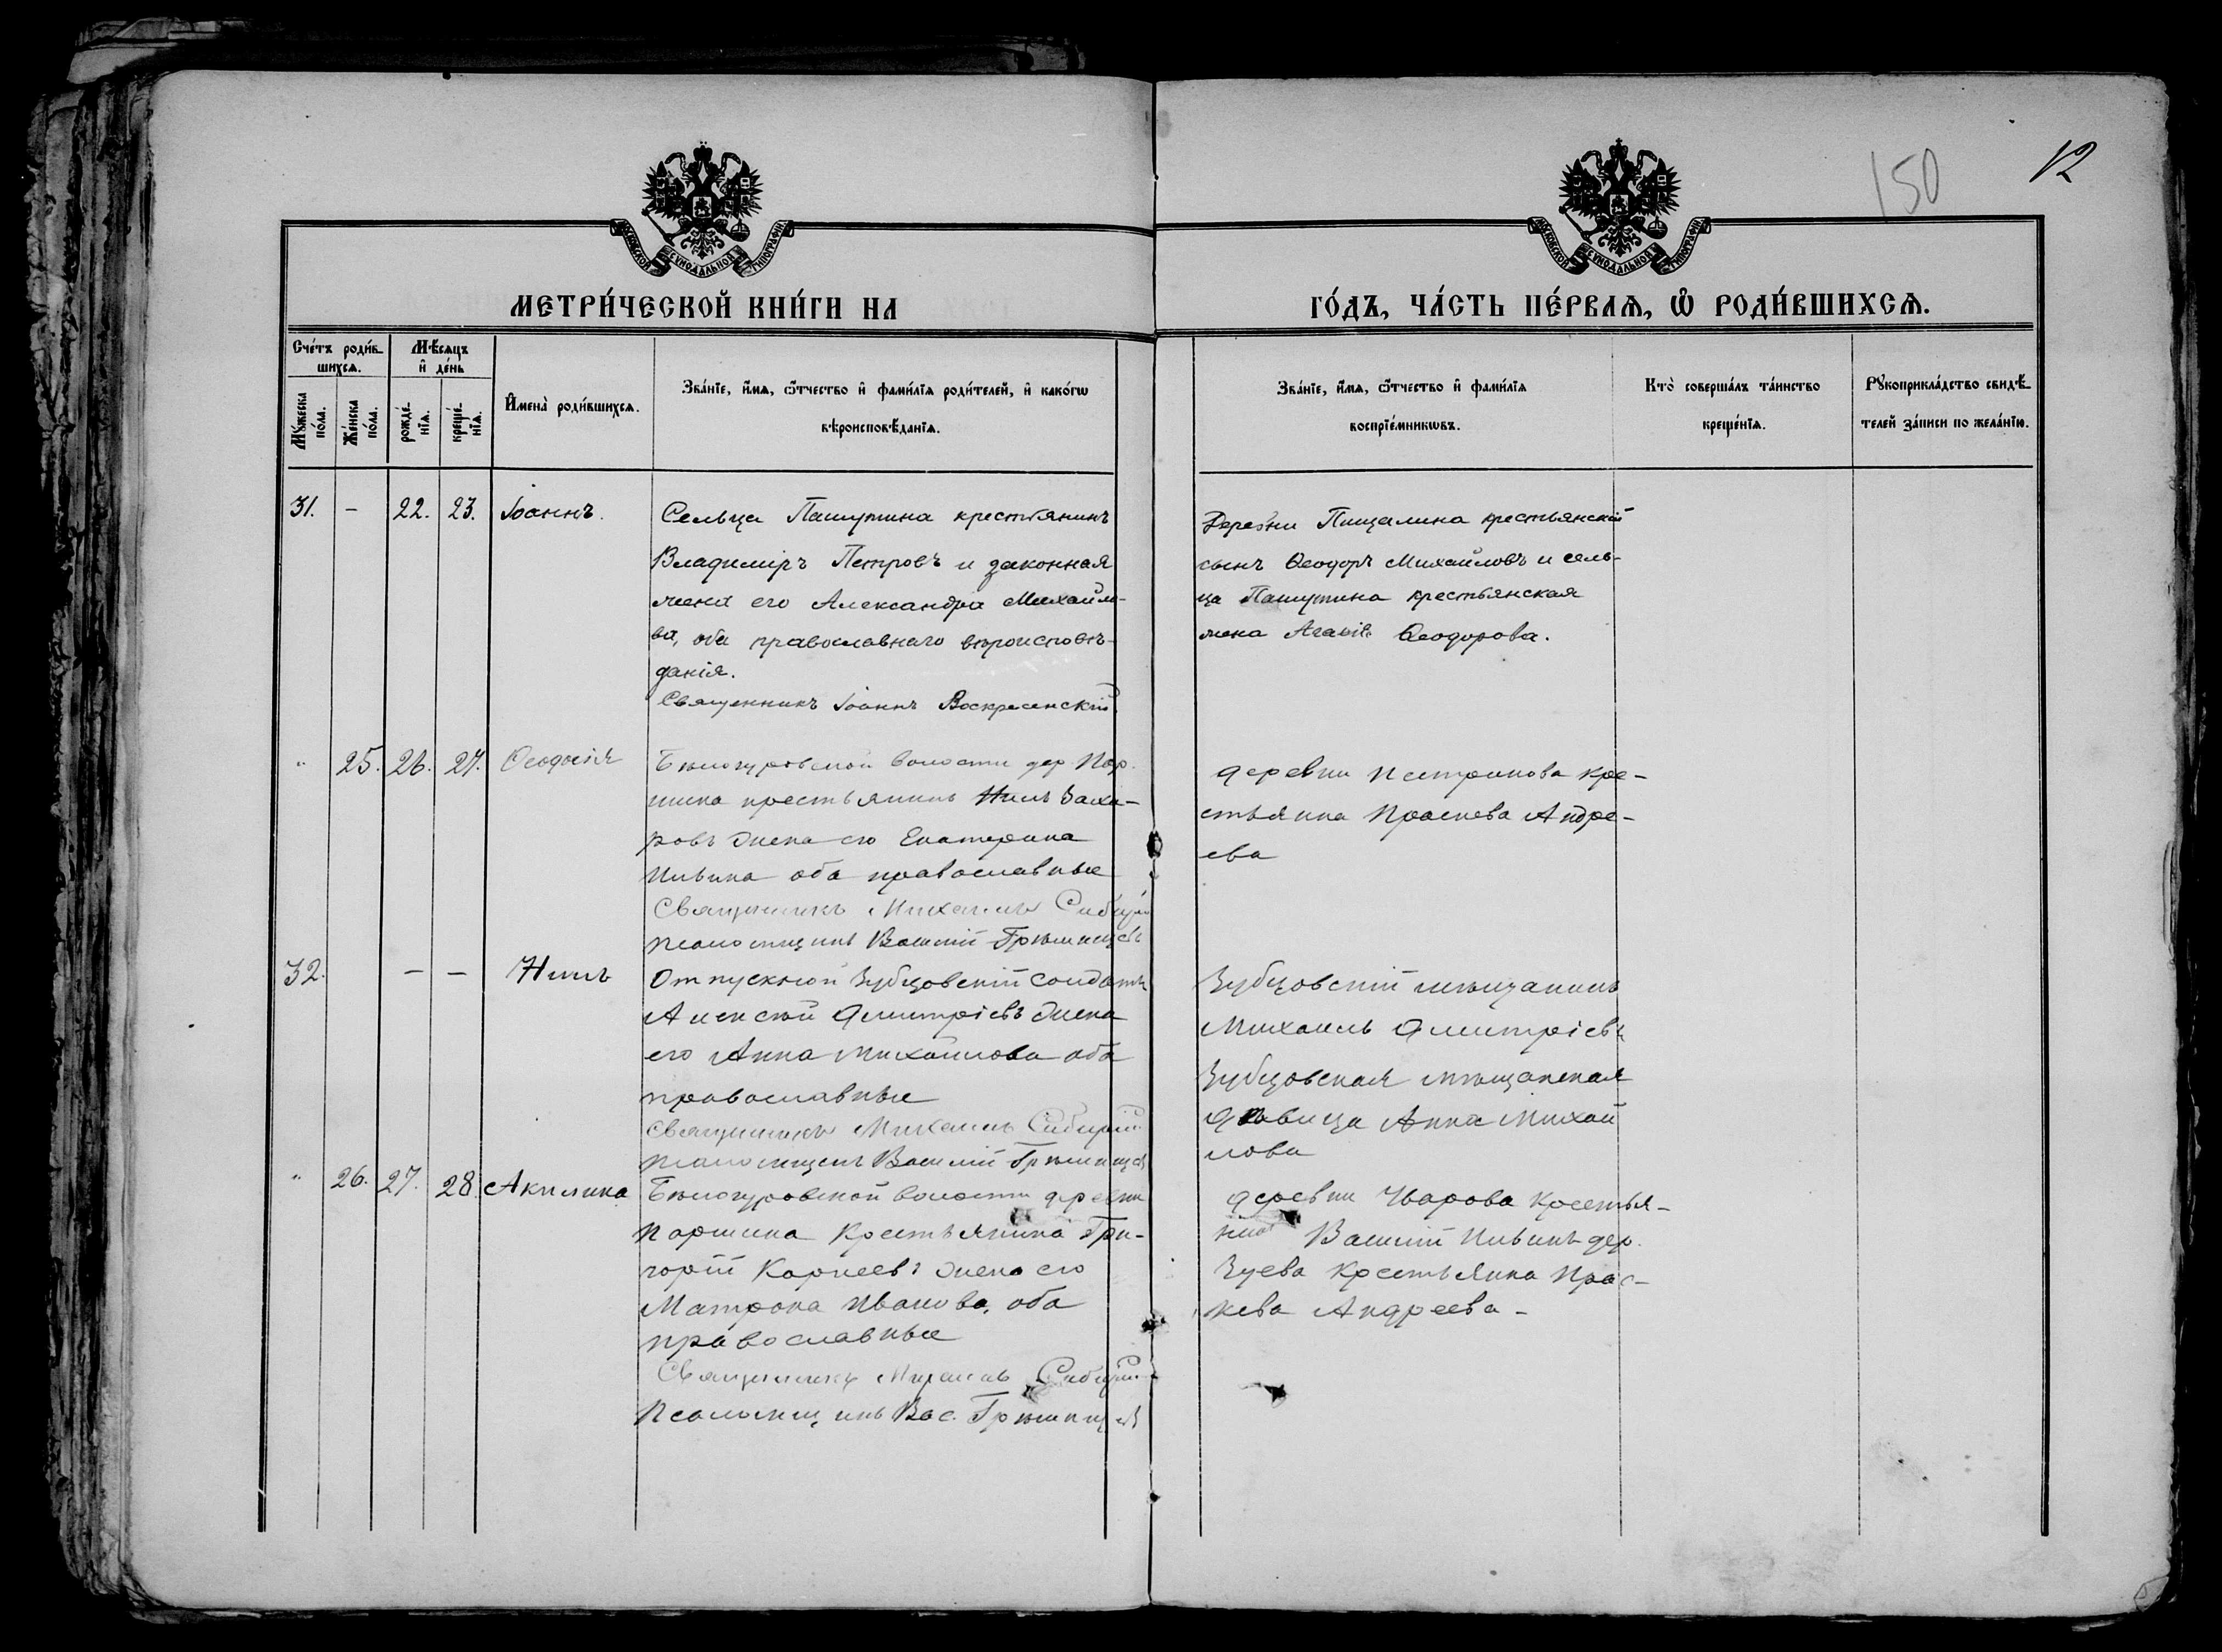 150
12
МОСКОВСКОЙ СУНОДАЛЬНОЙ ТИПОГРАФІИ
МОСКОВСКОЙ СУНОДАЛЬНОЙ ТИПОГРАФІИ
МЕТРИ́ЧЕСКОЙ КНИ́ГИ НА
ГО́ДЪ, ЧА́СТЬ ПЕ́РВАѦ, Ѡ҆ РОДИ́ВШИХСѦ.
Сче́тъ роди́в-
шихсѧ.
Мѣ́сѧцъ
и҆ де́нь
Мꙋ́жеска по́ла.
Же́нска по́ла.
рожде́-нїѧ.
креще́-нїѧ.
И҆мена̀ роди́вшихсѧ.
Зва́нїе, и҆́мѧ, ѻ҆́тчество и҆ фами́лїѧ роди́телей, и҆ како́гѡ
вѣроисповѣ́данїѧ.
Зва́нїе, и҆́мѧ, ѻ҆́тчество и҆ фами́лїѧ
воспрїе́мникѡвъ.
Кто̀ соверша́лъ та́инство
креще́нїѧ.
Рꙋкоприкла́дство свидѣ́-
телей за́писи по жела́нїю.
31. – 22. 23. Іоаннъ.
Сельца Пашутина крестьянинъ
Владиміръ Петровъ и законная
жена его Александра Михайло-
ва, оба православнаго вѣроисповѣ-
данія.
Священникъ Іоаннъ Воскресенскій.
Деревни Пищалина крестьянскій
сынъ Ѳеодоръ Михайловъ и сель-
ца Пашутина крестьянская
жена Агаѳія Ѳеодорова.
" 25. 26. 27. Ѳеодосія
Бѣлогуровской волости дер. Пор-
шина крестьянинъ Нилъ Заха-
ровъ жена его Екатерина
Ильина оба православные
Священникъ Михаилъ
Псаломщикъ Василій
деревни кре-
стьянка Праскева Андре-
ева
32. – – Нилъ
Отпускной Зубцовскій солдатъ
Алексѣй Дмитріевъ жена
его Анна Михайлова оба
православные
Священникъ Михаилъ
Псаломщикъ Василій
Зубцовскій мѣщанинъ
Михаилъ Дмитріевъ
Зубцовская мѣщанская
дѣвица Анна Михай
лова
" 26. 27. 28. Акилина
Бѣлогуровской волости деревни
Поршина Крестьянина Гри-
горій Корнеевъ жена его
Матрона Иванова, оба
православные
Священникъ Михаилъ
Псаломщикъ Вас.
деревни Уварова Крестья-
Василій Ильинъ дер.
Зуева Крестьянка Прас-
кева Андреева –